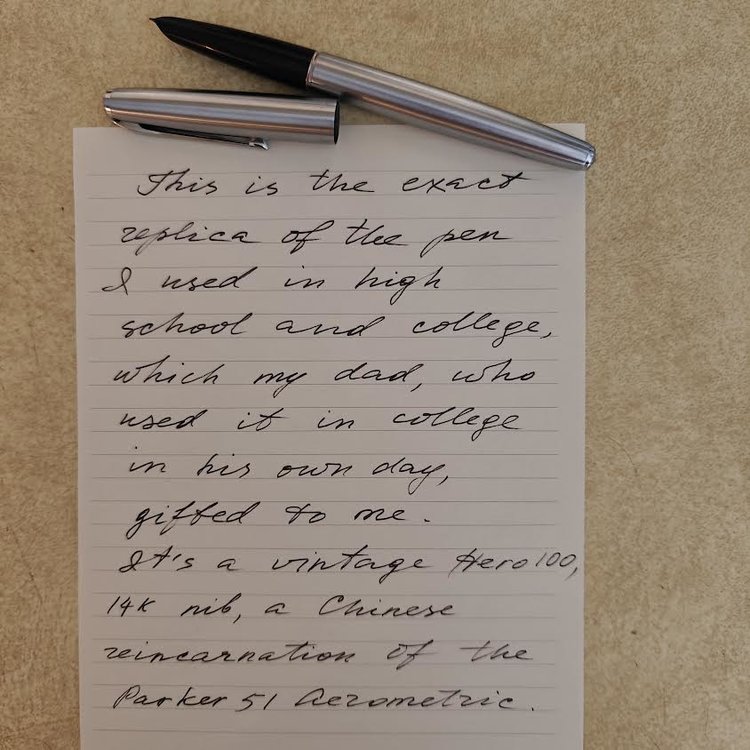 This is the exact
replica of the pen
I used in high
school and college,
which my dad, who
used it in college
in his own day,
gifted to me.
It's a vintage Hero 100,
14K nib, a Chinese
reincarnation of the
Parker 51 Aerometric.